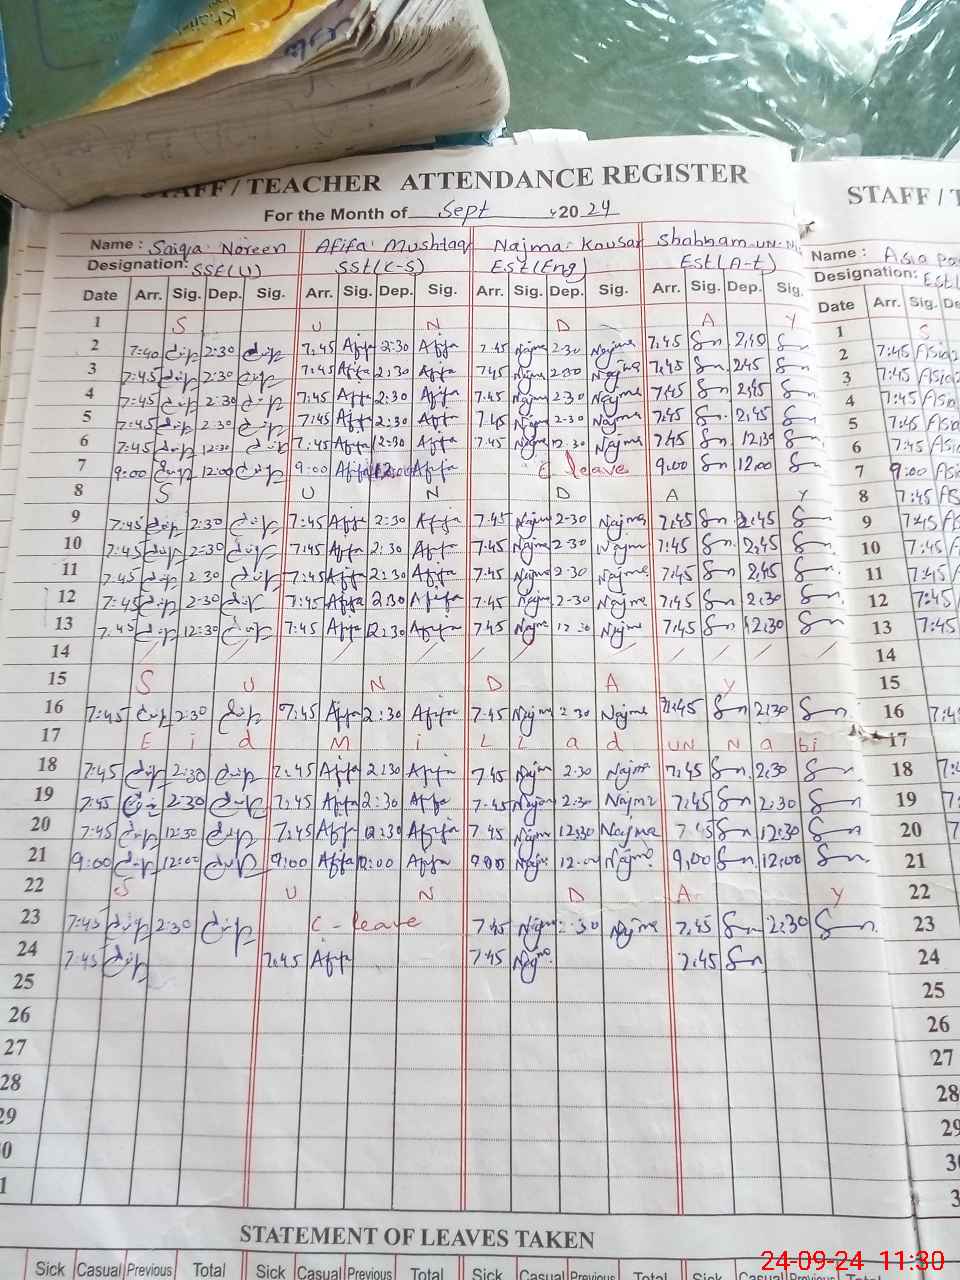 STAFF / TEACHER ATTENDANCE REGISTER STAFF / T
For the Month of Sept ,20 24
Name : Saiqa Noreen Afifa Mushtaq Najma Kousar Shabnam UN Name : Asia
Designation: SSE(U) SSt(C-S) Est(Eng) Est(A-t) Designation: Est
Date Arr. Sig. Dep. Sig. Arr. Sig. Dep. Sig. Arr. Sig. Dep. Sig. Arr. Sig. Dep. Sig. Date Arr. Sig. De
1 S U N D A Y 1 S
2 7:40 2:30 7:45 Affa 2:30 Affa 7:45 Najma 2-30 Najma 7:45 Sn 2:40 Sn 2 7:45 Asia
3 7:45 2:30 7:45 Affa 2:30 Affa 7:45 Najma 2:30 Najma 7:45 Sn 2:45 Sn 3 7:45 Asia
4 7:45 2:30 7:45 Affa 2:30 Affa 7:45 Najma 2-30 Najma 7:45 Sn 2:45 Sn 4 7:45 Asia
5 7:45 2:30 7:45 Affa 2:30 Affa 7:45 Najma 2-30 Najma 7:45 Sn 2:45 Sn 5 7:45 Asia
6 7:45 12:30 7:45 Affa 12:30 Affa 7:45 Najma 12:30 Najma 7:45 Sn 12:30 Sn 6 7:45 Asia
7 9:00 12:00 9:00 Affa Affa C leave 9:00 Sn 12:00 Sn 7 9:00 Asia
8 S U N D A Y 8 7:45 Asia
9 7:45 2:30 7:45 Affa 2:30 Affa 7:45 Najma 2-30 Najma 7:45 Sn 2:45 Sn 9 7:45 Asia
10 7:45 2:30 7:45 Affa 2:30 Affa 7:45 Najma 2-30 Najma 7:45 Sn 2:45 Sn 10 7:45
11 7:45 2:30 7:45 Affa 2:30 Affa 7:45 Najma 2-30 Najma 7:45 Sn 2:45 Sn 11 7:45
12 7:45 2:30 7:45 Affa 2:30 Affa 7:45 Najma 2-30 Najma 7:45 Sn 2:30 Sn 12 7:45
13 7:45 12:30 7:45 Affa 12:30 Affa 7:45 Najma 12:30 Najma 7:45 Sn 12:30 Sn 13 7:45
14 / / / / / / / / / / / 14
15 S U N D A Y 15
16 7:45 2:30 7:45 Affa 2:30 Affa 7:45 Najma 2:30 Najma 7:45 Sn 2:30 Sn 16 7:4
17 E i d M i L L a d UN N a bi 17
18 7:45 2:30 7:45 Affa 2:30 Affa 7:45 Najma 2:30 Najma 7:45 Sn 2:30 Sn 18 7:
19 7:45 2:30 7:45 Affa 2:30 Affa 7:45 Najma 2:30 Najma 7:45 Sn 2:30 Sn 19 7
20 7:45 12:30 7:45 Affa 12:30 Affa 7:45 Najma 12:30 Najma 7:45 Sn 12:30 Sn 20 7
21 9:00 12:00 9:00 Affa 12:00 Affa 9:00 Najma 12:00 Najma 9:00 Sn 12:00 Sn 21
22 S U N D A Y 22
23 7:45 2:30 C - leave 7:45 Najma 2:30 Najma 7:45 Sn 2:30 Sn 23
24 7:45 7:45 Affa 7:45 Najma 7:45 Sn 24
25 25
26 26
27 27
28 28
29 29
0 30
1 3
STATEMENT OF LEAVES TAKEN
Sick Casual Previous Total Sick Casual Previous Total Sick Casual Previous Total Sick Casual Previous Total
24-09-24 11:30